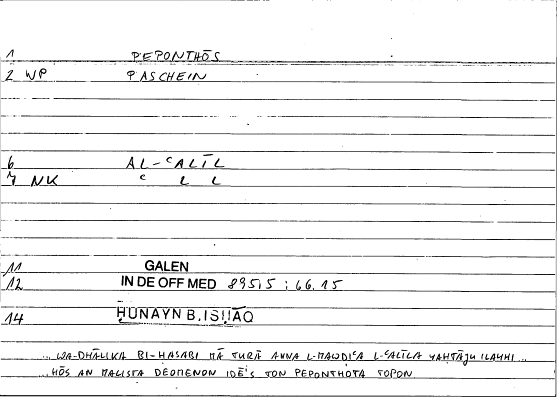 1 PEPONTHŌS
2 WP PASCHEIN
6 AL-ʿALĪL
7 NK ʿ L L
11 GALEN
12 IN DE OFF MED 895,5 : 66.15
14 ḤUNAYN B. ISḤĀQ
... WA-DHĀLIKA BI-ḤASABI MĀ TURĀ ANNA L-MAWḌIʿA L-ʿALĪLA YAḤTĀJU ILAYHI ...
... HŌS AN MALISTA DEOMENON IDĒIS TON PEPONTHOTA TOPON